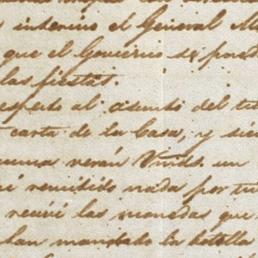 interino el General M
que el Gobierno se pon
las fiestas.
respecto al asunto del
carta de la Casa, y
verán Vmds. un
remitido nada por
recivi las monedas que
han mandado la botella